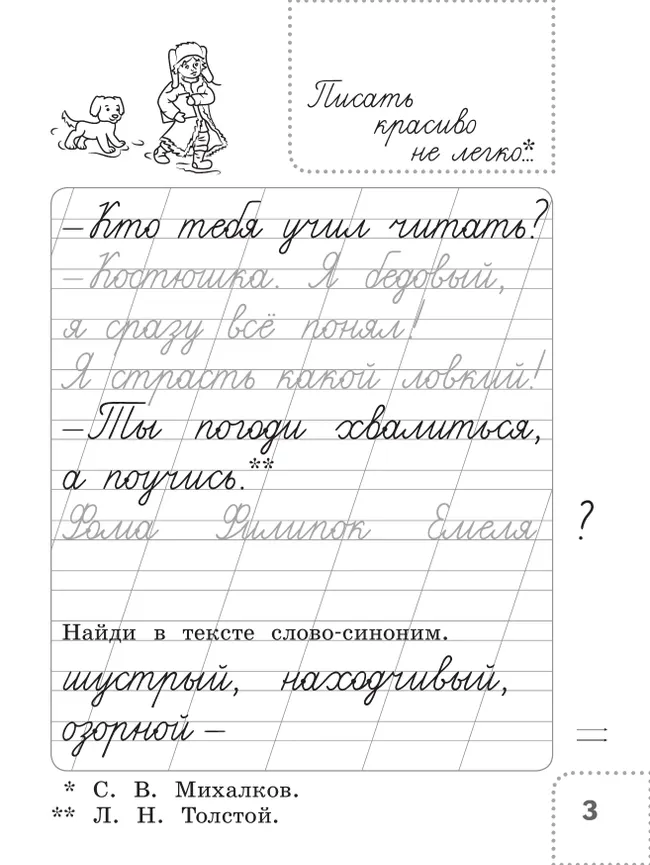 Писать
красиво
не легко...*
– Кто тебя учил читать?
– Костюшка. Я бедовый,
я сразу всё понял!
Я страсть какой ловкий!
– Ты погоди хвалиться,
а поучись.**
Фома Филипок Емеля ?
Найди в тексте слово-синоним.
шустрый, находчивый,
озорной –
* С. В. Михалков.
** Л. Н. Толстой.
3